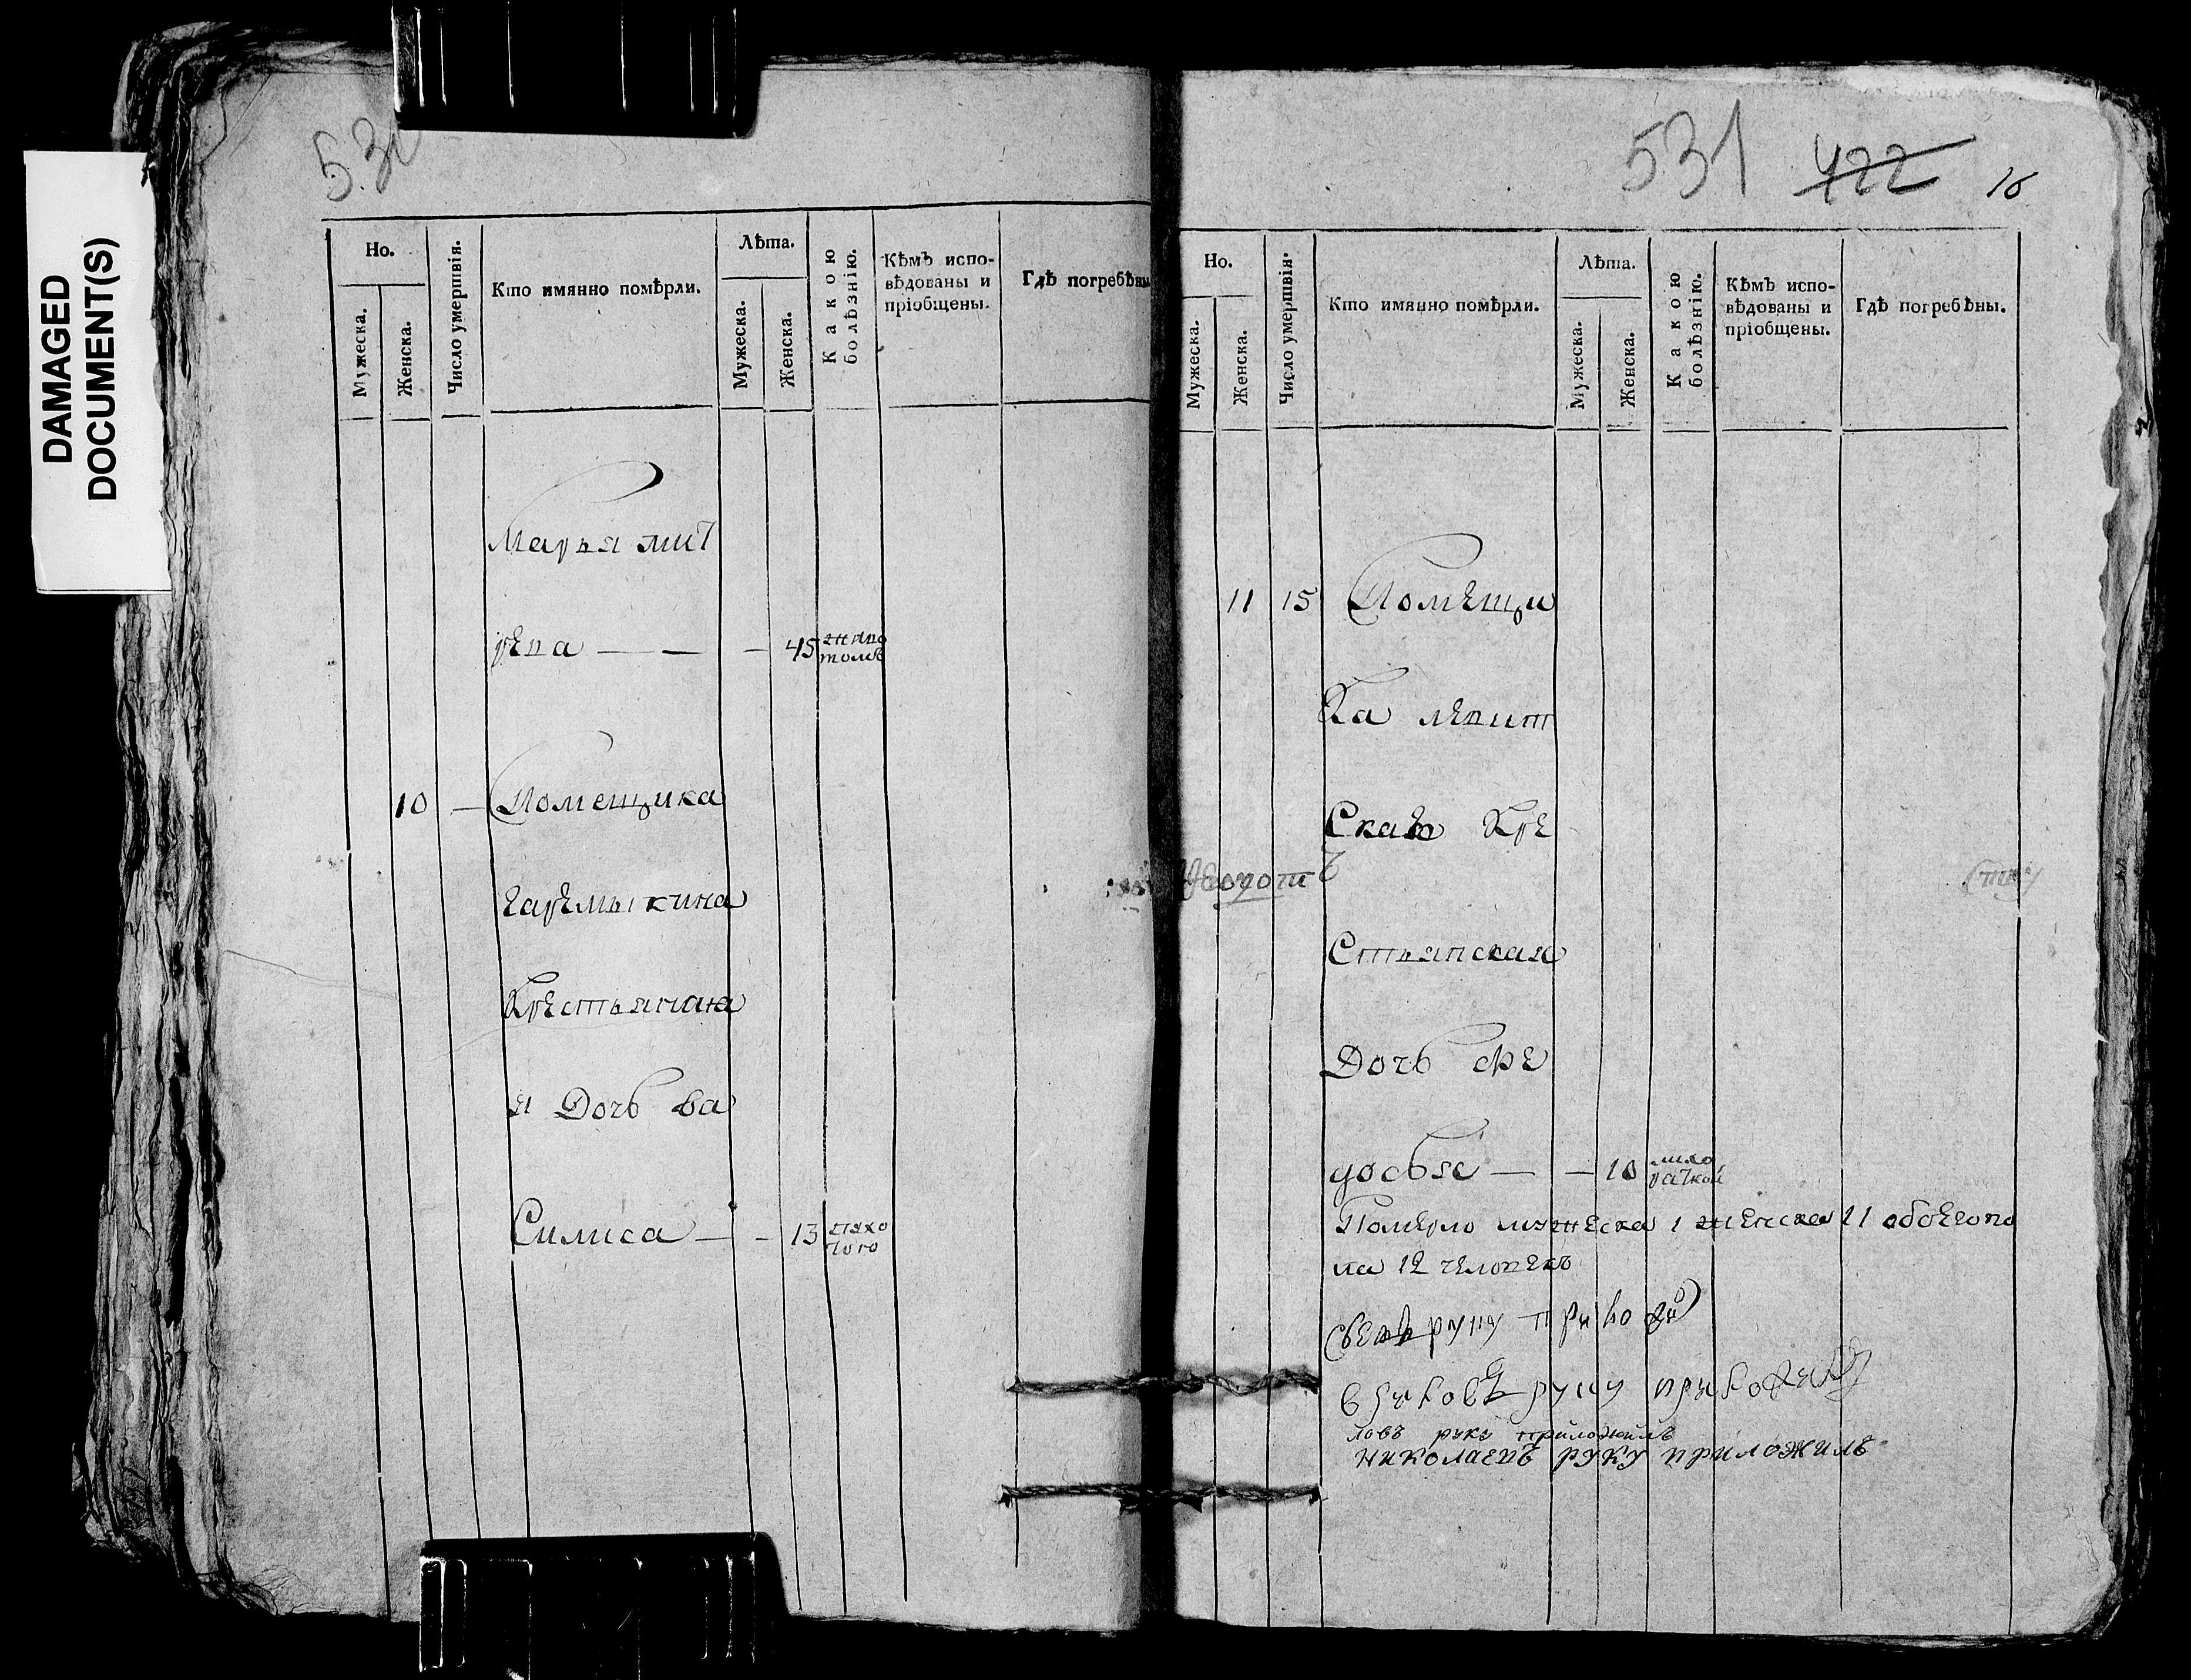 DAMAGED
DOCUMENT(S)
530
Но.
Мужеска.
Женска.
Число умертвія.
Кто имянно помѣрли.
Лѣта.
Мужеска.
Женска.
Какою
болѣзнію.
Кѣмъ испо-
вѣдованы и
пріобщены.
Гдѣ погребѣны
Марья мит
рева — — — 45
10 — Помещика
Гаремыкина
Крестьянина
я Дочь Ва
Силиса — — 13
531 422 16
Но.
Мужеска.
Женска.
Число умертвія.
Кто имянно помѣрли.
Лѣта.
Мужеска.
Женска.
Какою
болѣзнію.
Кѣмъ испо-
вѣдованы и
пріобщены.
Гдѣ погребѣны.
11 15 Помещи
Ка левит
Скаго Кре
стьянская
Дочь Фе
досья — — 10 лихо
радкой
Померло мужеска 1 женска 11 обоего по
ла 12 человекъ
руку
руку
ловъ руку приложилъ
Николаевъ руку приложилъ